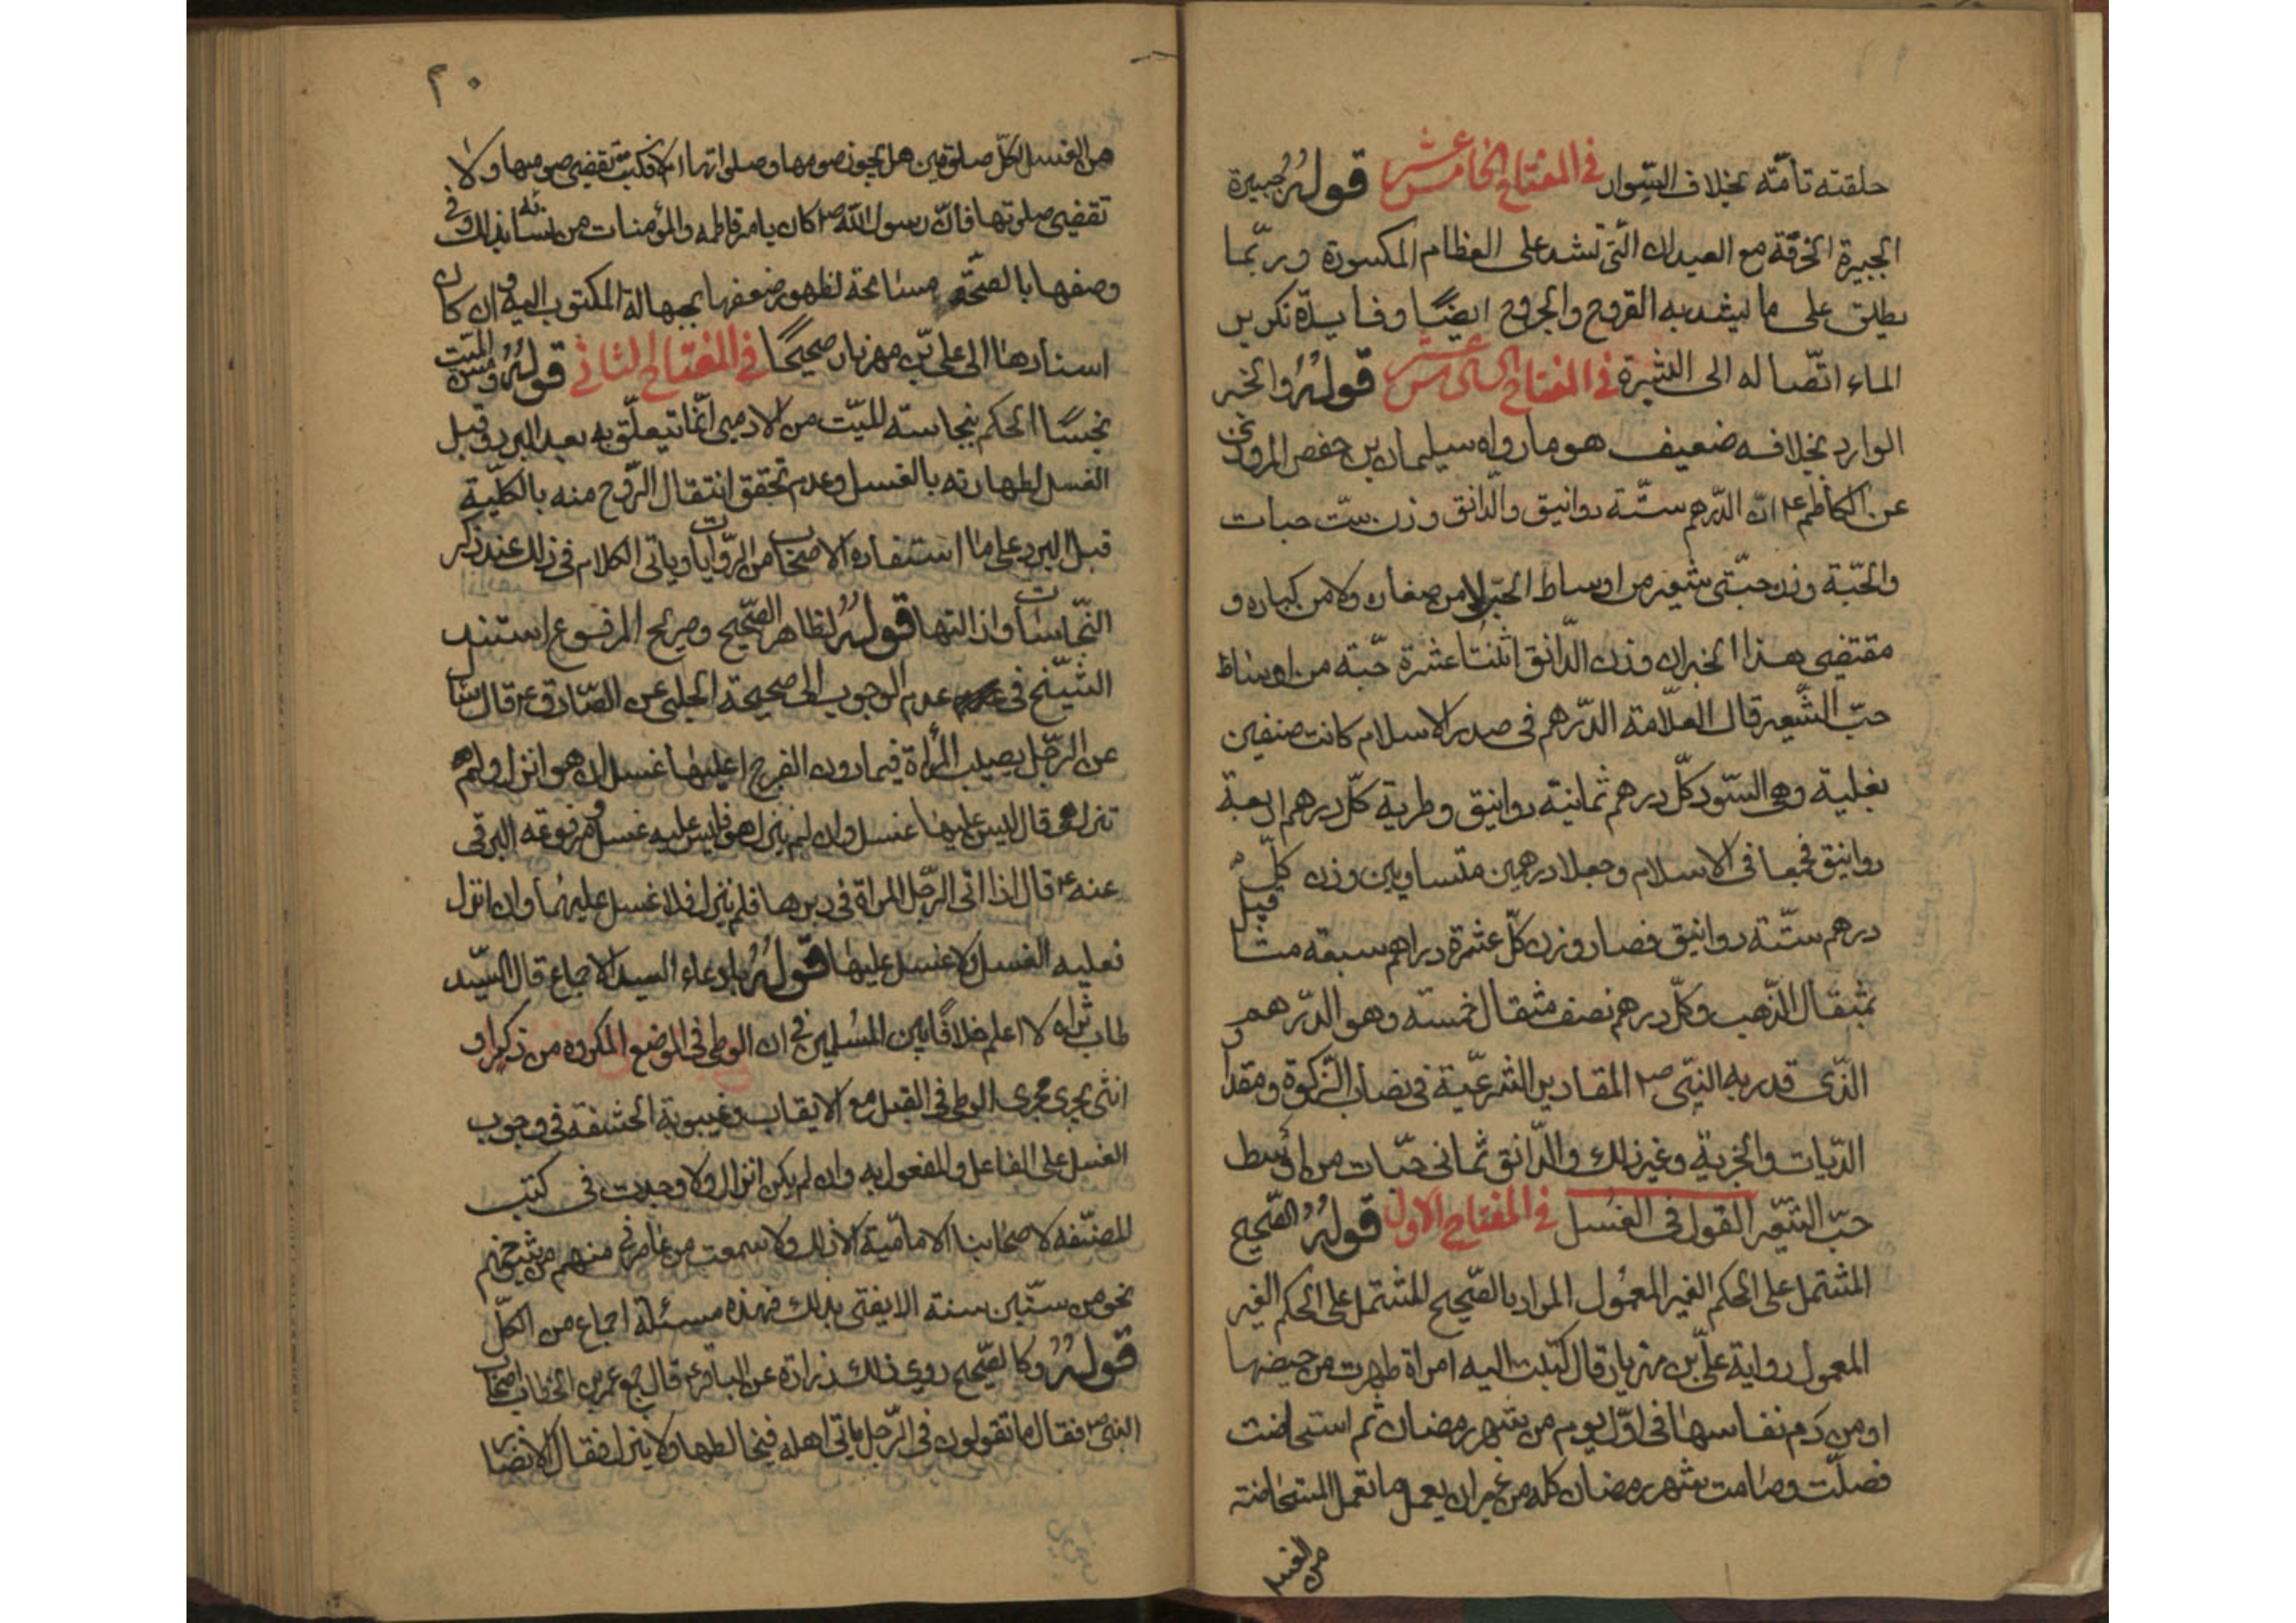 حلقته تامّته بخلاف السّوار في المفتاح الخامس عشر قولهُ جبيرة
الجبيرة الخرقة مع العيدان الّتي تشد على العظام المكسورة وربّما
يطلق على ما يشد به القروح والجروح ايضًا وفايدة تكرير
الماء اتّصاله الى البشرة في المفتاح السادس عشر قولهُ والخبر
الوارد بخلافه ضعيف هو ما رواه سليمان بن حفص المروزي
عن الكاظم ع انّ الدّرهم ستّة دوانيق والدّانق وزن ستّ حبات
والحبّة وزن حبّتى شعير من اوساط الحبّ لا من صغاره ولا من كباره و
مقتضى هذا الخبر ان وزن الدّانق اثنتا عشرة حبّة من اوساط
حبّ الشّعير قال العلّامة الدّرهم في صدر الاسلام كانت صنفين
بغلية وهي السّود كلّ درهم ثمانية دوانيق وطرية كلّ درهم اربعة
دوانيق فجمعا في الاسلام وجعلا درهمين متساويين وزن كلّ
درهم ستّة دوانيق فصار وزن كلّ عشرة دراهم سبعة مثاقيل
بمثقال الذّهب وكلّ درهم نصف مثقال خمسه وهو الدّرهم
الّذى قدر به النبيّ ص المقادير الشرعيّة في نصاب الزّكوة ومقدار
الدّيات والجزية وغير ذلك والدّانق ثمانى حبّات من اوسط
حبّ الشّعير القول في الغسل في المفتاح الاول قولهُ الصّحيح
المشتمل على الحكم الغير المعمول المراد بالصّحيح المشتمل على الحكم الغير
المعمول رواية علىّ بن مهزيار قال كتبت اليه امراة طهرت من حيضها
او من دم نفاسها في اوّل يوم من شهر رمضان ثم استحاضت
فصلّت وصامت شهر رمضان كله من غير ان يعمل ما تعمل المستحاضة
من الغسل
٢٠
من الغسل لكلّ صلوتين هل يجوز صومها وصلواتها ام لا فكتب تقضى صومها ولا
تقضى صلوتها فانّ رسول اللّه ص كان يامر فاطمه والمؤمنات من نسائه بذلك وفي
وصفها بالصّحّة مسامحة لظهور ضعفها بجهالة المكتوب اليه وان كان
اسنادها الى علىّ بن مهزيار صحيحًا في المفتاح الثاني قولهُ ومسّ الميّت
نجسًا الحكم بنجاسته للميّت من الادمى انّما يتعلّق به بعد البرد وقبل
الغسل لطهارته بالغسل وعدم تحقق انتقال الرّوح منه بالكلّية
قبل البرد على ما استفاده الاصحاب من الرّوايات وياتى الكلام في ذلك عند ذكر
النّجاسات وازالتها قولهُ لظاهر الصّحيح وصريح المرفوع استند
الشّيخ في عدم الوجوب الى صحيحة الحلبى عن الصّادق ع قال سال
عن الرّجل يصيب المراة فيما دون الفرج اعليها غسل ان هو انزل ولم
تنزل هى قال ليس عليها غسل وان لم ينزل هو فليس عليه غسل ومرفوعه البرقى
عنه ع قال اذا اتى الرّجل المراة في دبرها فلم ينزل فلا غسل عليهما وان انزل
فعليه الغسل ولا غسل عليها قولهُ بادعاء السيد الاجماع قال السّيد
طاب ثراه لا اعلم خلافًا بين المسلمين في ان الوطى في الموضع المكروه من ذكر او
انثى يجرى مجرى الوطى في القبل مع الايقاب وغيبوبة الحشفة في وجوب
الغسل على الفاعل والمفعول به وان لم يكن انزال ولا وجدت في كتب
المصنّفه لاصحابنا الاماميّة الا ذلك ولا سمعت من عاصرنى منهم من شيوخهم
نحو من ستّين سنة الا يفتى بذلك فهذه مسئلة اجماع من الكلّ
قولهُ وكالصّحيح روى ذلك زرارة عن الباقر ع قال جمع عمر بن الخطاب اصحاب
النبىّ ص فقال ما تقولون في الرّجل ياتى اهله فيخالطها ولا ينزل فقال الانصار